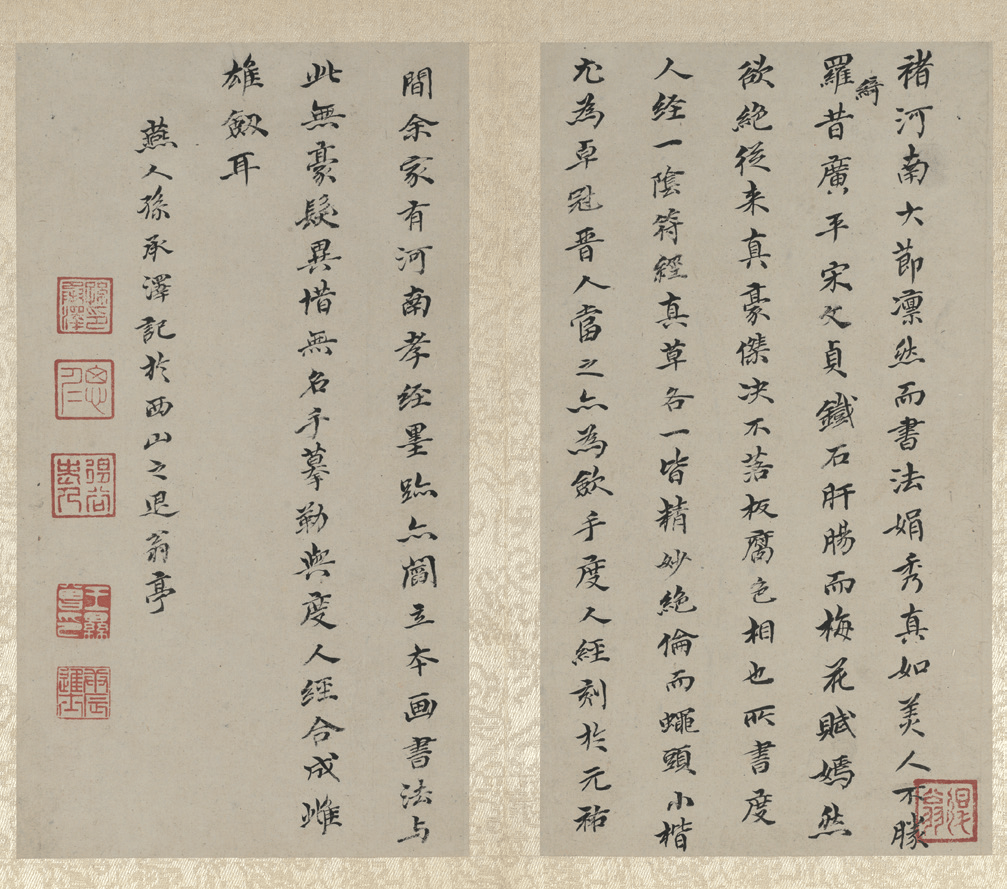 褚河南大節凛然而書法娟秀真如美人不勝
羅綺昔廣平宋文貞鐵石肝腸而梅花賦嫣然
欲絶従来真豪傑决不落板腐色相也所書度
人经一陰符經真草各一皆精妙絶倫而蠅頭小楷
尤為卓冠晋人當之亦為歛手度人經刻於元祐
間余家有河南孝经墨跡亦閻立本画書法与
此無豪髮異惜無名手摹勒與度人經合成雌
雄劔耳
燕人孫承澤記於西山之退翁亭
退翁
孫承澤印